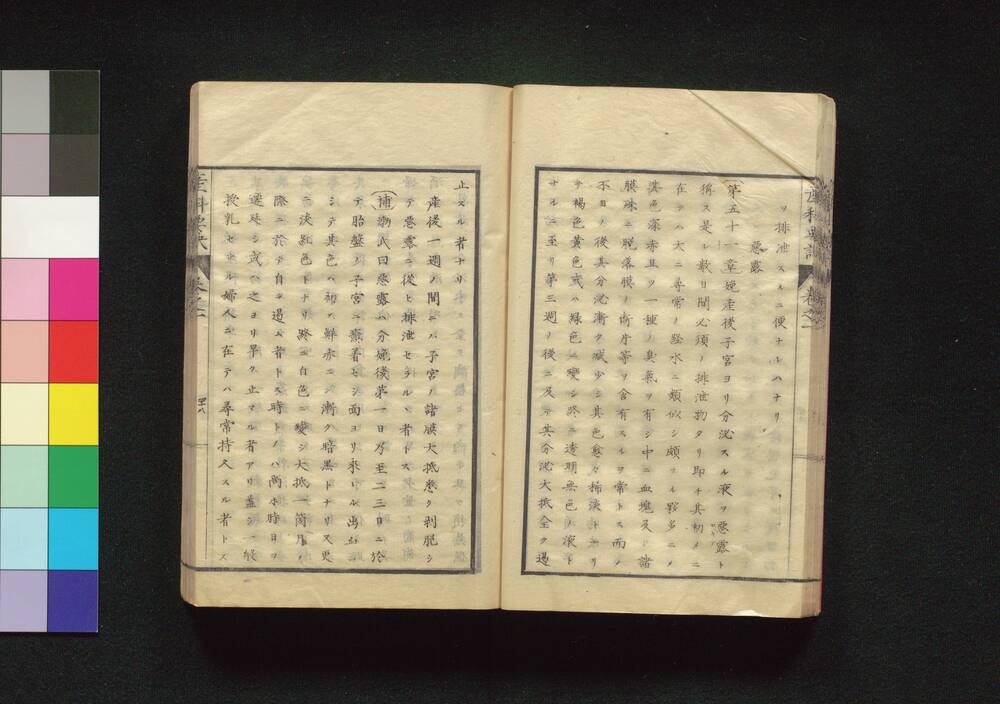 ヲ排泄スルニ便ナレハナリ
悪露
(第五十一章)娩産後子宮ヨリ分泌スル液ヲ悪露ト
稱ス是レ数日間必須ノ排泄物タリ即チ其初メニ
在テハ大ニ尋常ノ經水ニ類似シ頗ル夥多ニメ
其色深赤且ツ一種ノ臭氣ヲ有シ中ニ血塊及ヒ諸
膜殊ニ脱落膜ノ断片等ヲ含有スルヲ常トス而メ
不日ノ後其分泌漸ク減少シ其色愈々稀淡トナリ
テ褐色黄色或ハ緑色ニ變シ終ニ透明無色ノ液ト
ナルニ至リ第三週ノ後ニ及テ其分泌大抵全ク過
止スル者ナリ
産後一週ノ間ニハ子宮ノ諸膜大抵悉ク剥脱シ
テ悪露ニ從ヒ排泄セラルヽ者トス
(補)氏曰悪露ハ分娩後第一日乃至二三日ニ於
テ胎盤ノ子宮ニ癒着セシ面ヨリ来ル出血ニ
シテ其色ハ初メ鮮赤ニシ漸ク暗黒トナリ又更
ニ淡紅色トナリ終ニ白色ニ變シ大抵一箇月ノ
際ニ於テ自ラ過止者トス時トノハ尚ホ時日ヲ
遷延シ或ハ之ヨリ早ク止マル者アリ蓋シ一般
授乳セサル婦人ニ在テハ尋常持久スル者トス
産科要訣 巻之二
四八